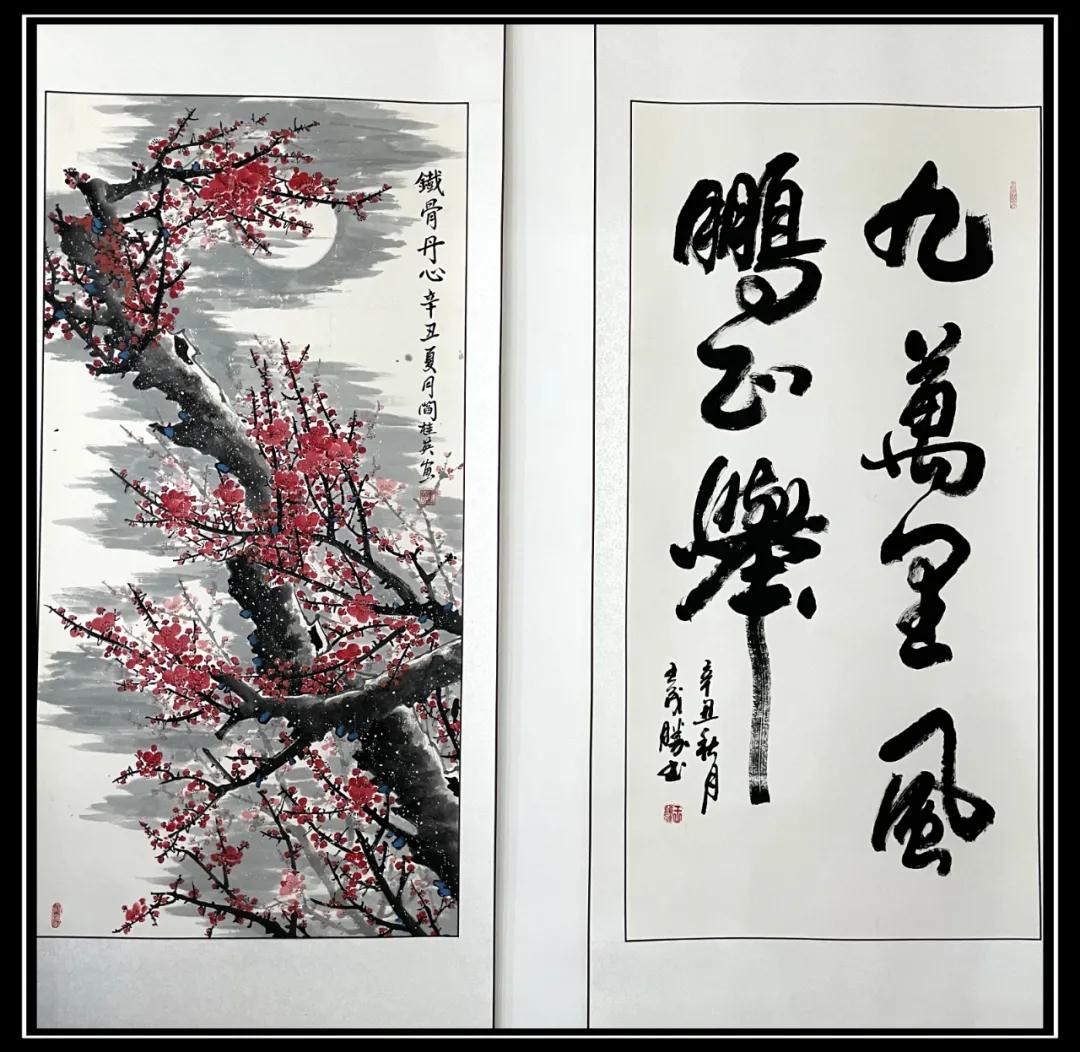 鐵骨丹心 辛丑夏月閻桂英
九萬里風
鵬正舉
辛丑秋月
王茂勝书